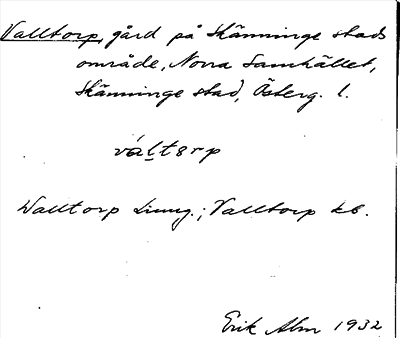 Valltorp, gård på Skänninge stads
område, Norra Samhället,
Skänninge stad, Österg. l.
váltorp
Walltorp Ljung.; Valltorp kb.
Erik Alm 1932